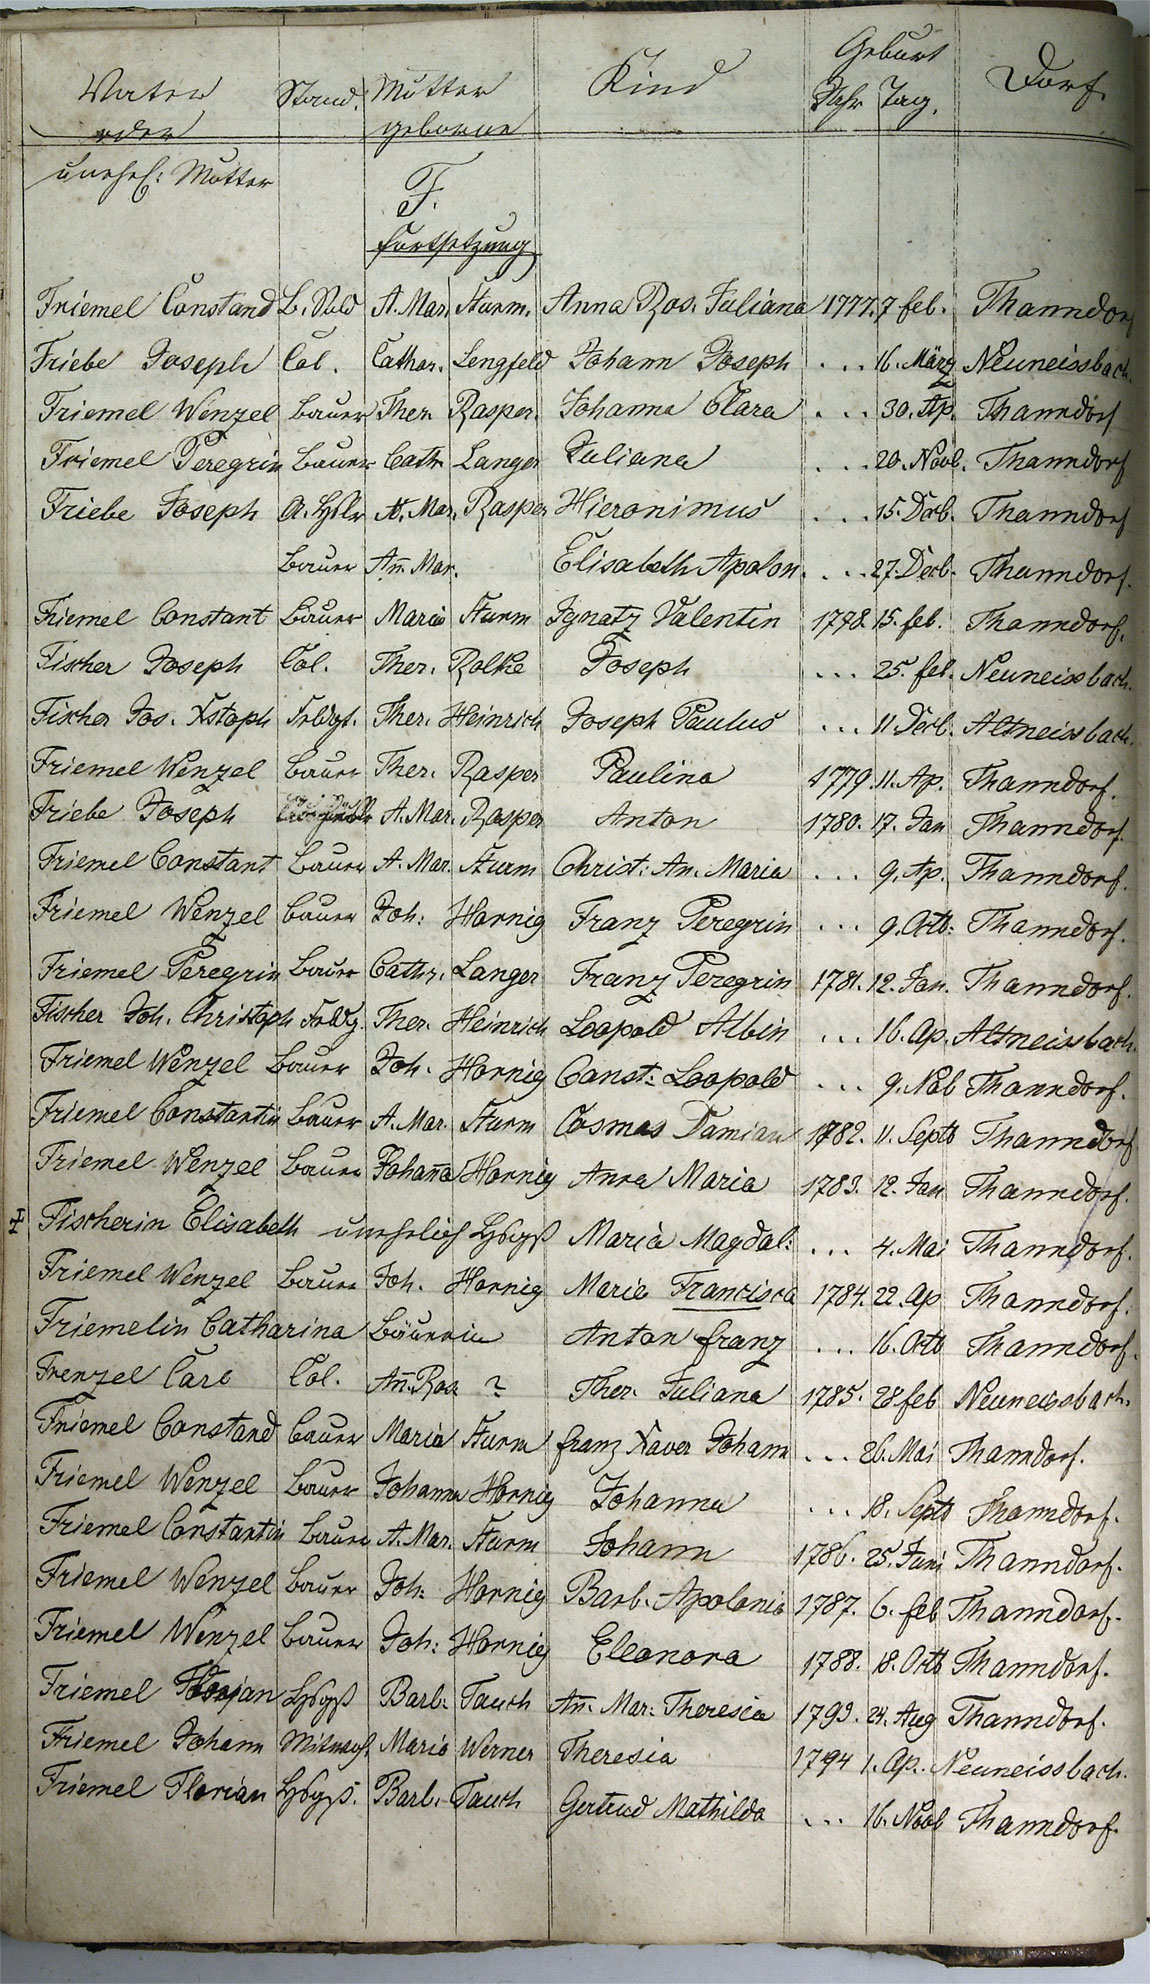 Geburt
Vater Stand. Mutter Kind Jahr Tag. Dorf.
oder geborne
unehl: Mutter
F.
Fortsetzung
Friemel Constand B. Sold A. Mar. Sturm. Anna Ros. Juliana 1777. 7 feb. Thanndorf
Friebe Joseph Col. Cathar. Lengfeld Johann Joseph ... 16. März Neuneissbach.
Friemel Wenzel Bauer Ther. Rasper. Johanna Clara ... 30. Ap. Thanndorf
Friemel Peregrin Bauer Cath. Langer Juliana ... 20. Novb. Thanndorf
Friebe Joseph A. Hslr A. Mar. Rasper Hieronimus ... 15. Decb. Thanndorf
Bauer An̄ Mar. Elisabeth Apolon. ... 27. Decb. Thanndorf.
Friemel Constant Bauer Maria Sturm Ignatz Valentin 1778. 15. feb. Thanndorf.
Fischer Joseph Col. Ther. Rolke Joseph ... 25. feb. Neuneissbach.
Fischer Jos. Xstoph Ther. Heinrich Joseph Paulus ... 11. Decb. Altneissbach.
Friemel Wenzel Bauer Ther. Rasper Paulina 1779. 11. Ap. Thanndorf.
Friebe Joseph A. Mar. Rasper Anton 1780. 17. Jan Thanndorf.
Friemel Constant Bauer A. Mar. Sturm Christ: An. Maria ... 9. Ap. Thanndorf.
Friemel Wenzel Bauer Joh: Hornig Franz Peregrin ... 9. Octb: Thanndorf.
Friemel Peregrin Bauer Cathr. Langer Franz Peregrin 1781. 12. Jan. Thanndorf.
Fischer Joh. Christoph Ther. Heinrich Leopold Albin ... 16. Ap. Altneissbach.
Friemel Wenzel Bauer Joh. Hornig Const: Leopold ... 9. Nob Thanndorf.
Friemel Constantin Bauer A. Mar. Sturm Cosmas Damian 1782. 11. Septb Thanndorf.
Friemel Wenzel Bauer Johan̄a Hornig Anna Maria 1783. 12. Jan Thanndorf.
Fischerin Elisabeth unehelich Hsgß Maria Magdal: ... 4. Mai Thanndorf.
Friemel Wenzel Bauer Joh. Hornig Maria Francisca 1784. 22. Ap Thanndorf.
Friemelin Catharina Bäuerin Anton franz ... 16. Octb Thanndorf.
Frenzel Carl Col. An̄. Ros ? Ther. Juliana 1785. 28 feb Neuneissbach.
Friemel Constand Bauer Maria Sturm franz Xaver Johann ... 26. Mai Thanndorf.
Friemel Wenzel Bauer Johanna Hornig Johanna ... 18. Septb Thanndorf.
Friemel Constantin Bauer A. Mar. Sturm Johann 1786. 25. Juni Thanndorf.
Friemel Wenzel Bauer Joh: Hornig Barb. Apolonia 1787. 6. feb Thanndorf.
Friemel Wenzel Bauer Joh: Hornig Eleonora 1788. 18. Octb Thanndorf.
Friemel Florian Hsgß Barb: Tauch An̄. Mar: Theresia 1793. 24. Aug Thanndorf.
Friemel Johann Maria Werner Theresia 1794 1. Ap. Neuneissbach.
Friemel Florian Hsgß. Barb. Tauch Gertrud Mathilda ... 16. Novb Thanndorf.